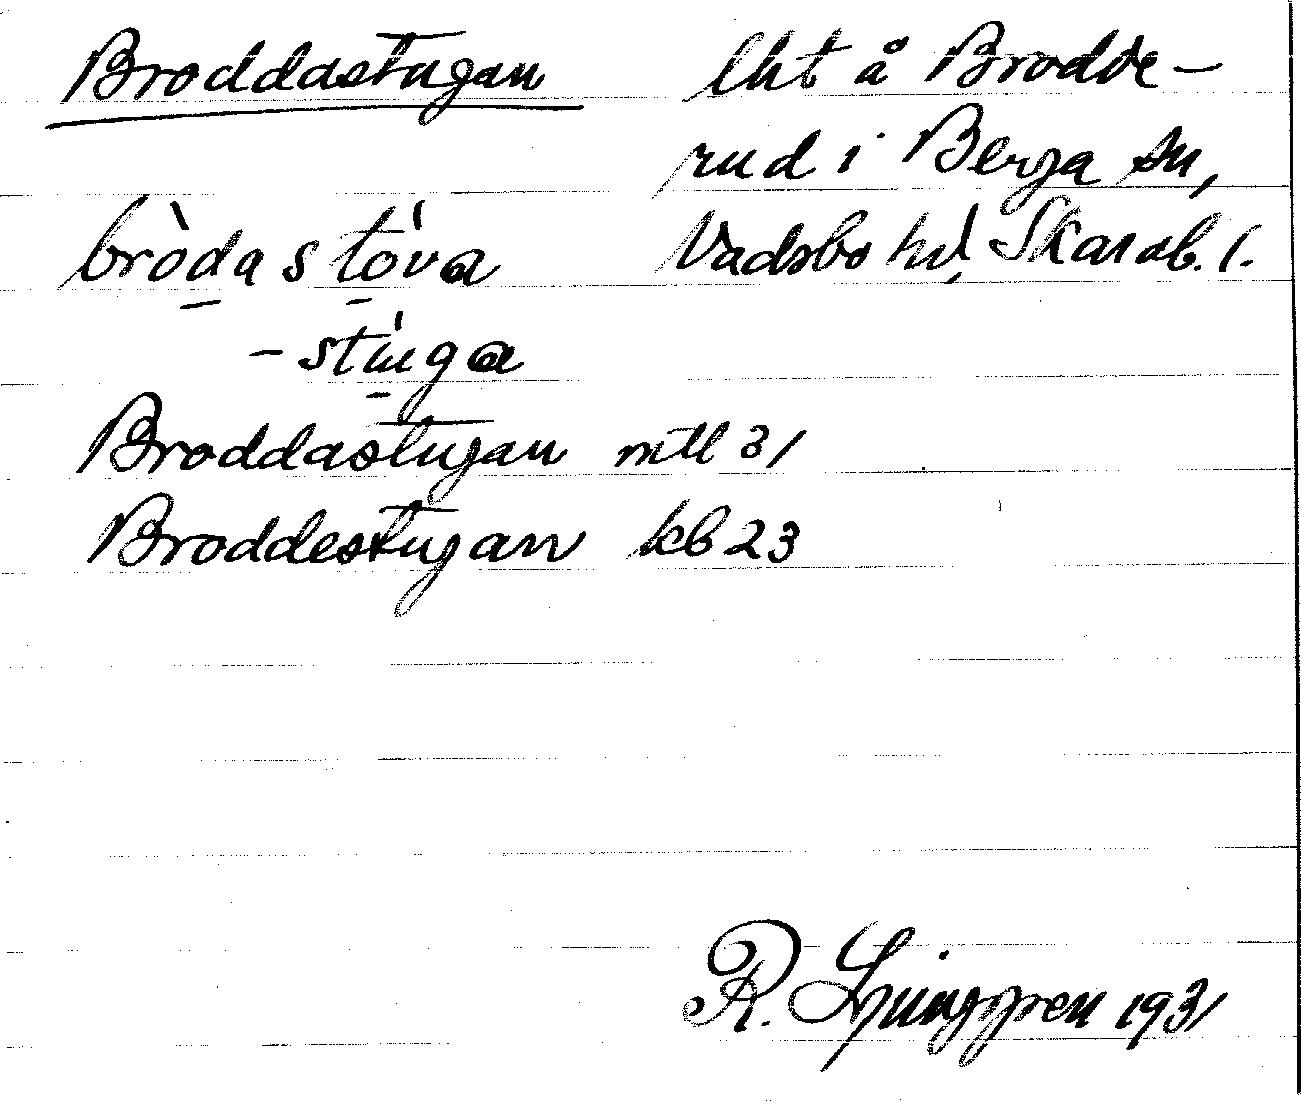 Broddastugan
lht å Brodde-
rud i Berga sn,
Vadsbo hd, Skarab. l.
bròdastóva
-stúga
Broddastugan mtl 31
Broddestugan kb 23
R. Ljunggren 1931